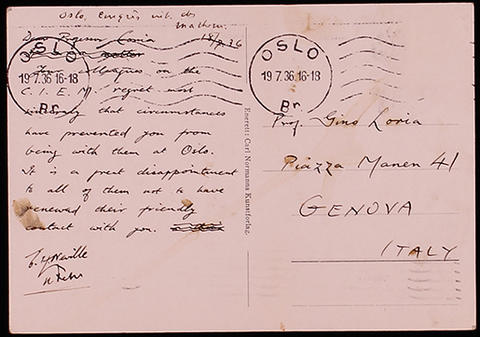 Oslo, Congrès int. des
Mathém.
18/7.36
Dear Professor Loria
Your colleagues on the
C.I.E.M. regret most
sincerely that circumstances
have prevented you from
being with them at Oslo.
It is a great disappointment
to all of them not to have
renewed their friendly
contact with you.
E. H. Neville
OSLO
19 7.36 16-18
Br.
OSLO
19 7.36 16-18
Br.
Eneret: Carl Normanns Kunstforlag.
Prof. Gino Loria
Piazza Manen 41
GENOVA
ITALY